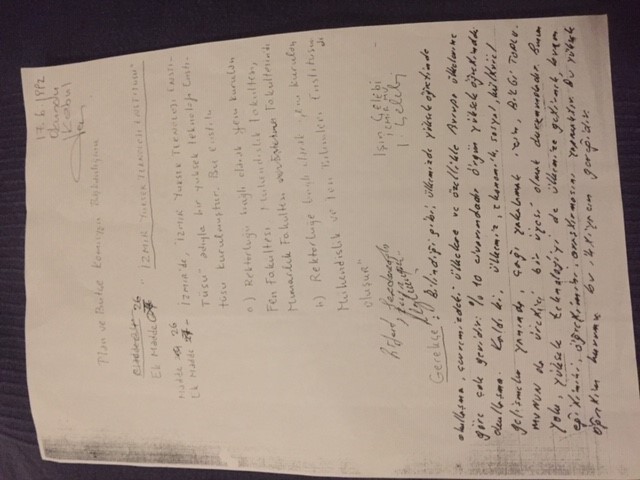 17.6.1992
Kabul
Plan ve Bütçe Komisyon Başkanlığına
26
Ek Madde
"İZMİR YÜKSEK TEKNOLOJİ ENSTİTÜSÜ"
Madde 26
Ek Madde - İzmir'de, "İZMİR YÜKSEK TEKNOLOJİ ENSTİ-
TÜSÜ" adıyla bir yüksek teknoloji Ensti-
tüsü kurulmuştur. Bu enstitü
a) Rektörlüğe bağlı olarak yeni kurulan
Fen Fakültesi, Mühendislik Fakültesi,
Mimarlık Fakültesi
b) Rektörlüğe bağlı olarak yeni kurulan
Mühendislik ve Fen Bilimleri Enstitüsü
oluşur"
Işın Çelebi
İZMİR
Gerekçe: Bilindiği gibi, ülkemizde yüksek öğretimde
okullaşma, çevrimizdeki ülkelere ve özellikle Avrupa ülkelerine
göre çok geridir. % 10 civarındadır örgün yüksek öğretimdeki
okullaşma. Kaldı ki, ülkemiz, ekonomik, sosyal, kültürel
gelişmeler yanında, çağı yakalamak için, BİLGİ TOPLU-
MUNUN da üretken bir üyesi olmak durumundadır. Bunun
yolu, yüksek teknolojiyi de ülkemize getirmek
eğitimini, öğretimini, araştırmasını yapmaktır. Bu yüksek
öğretim kurumu bu ihtiyacın gereğidir.